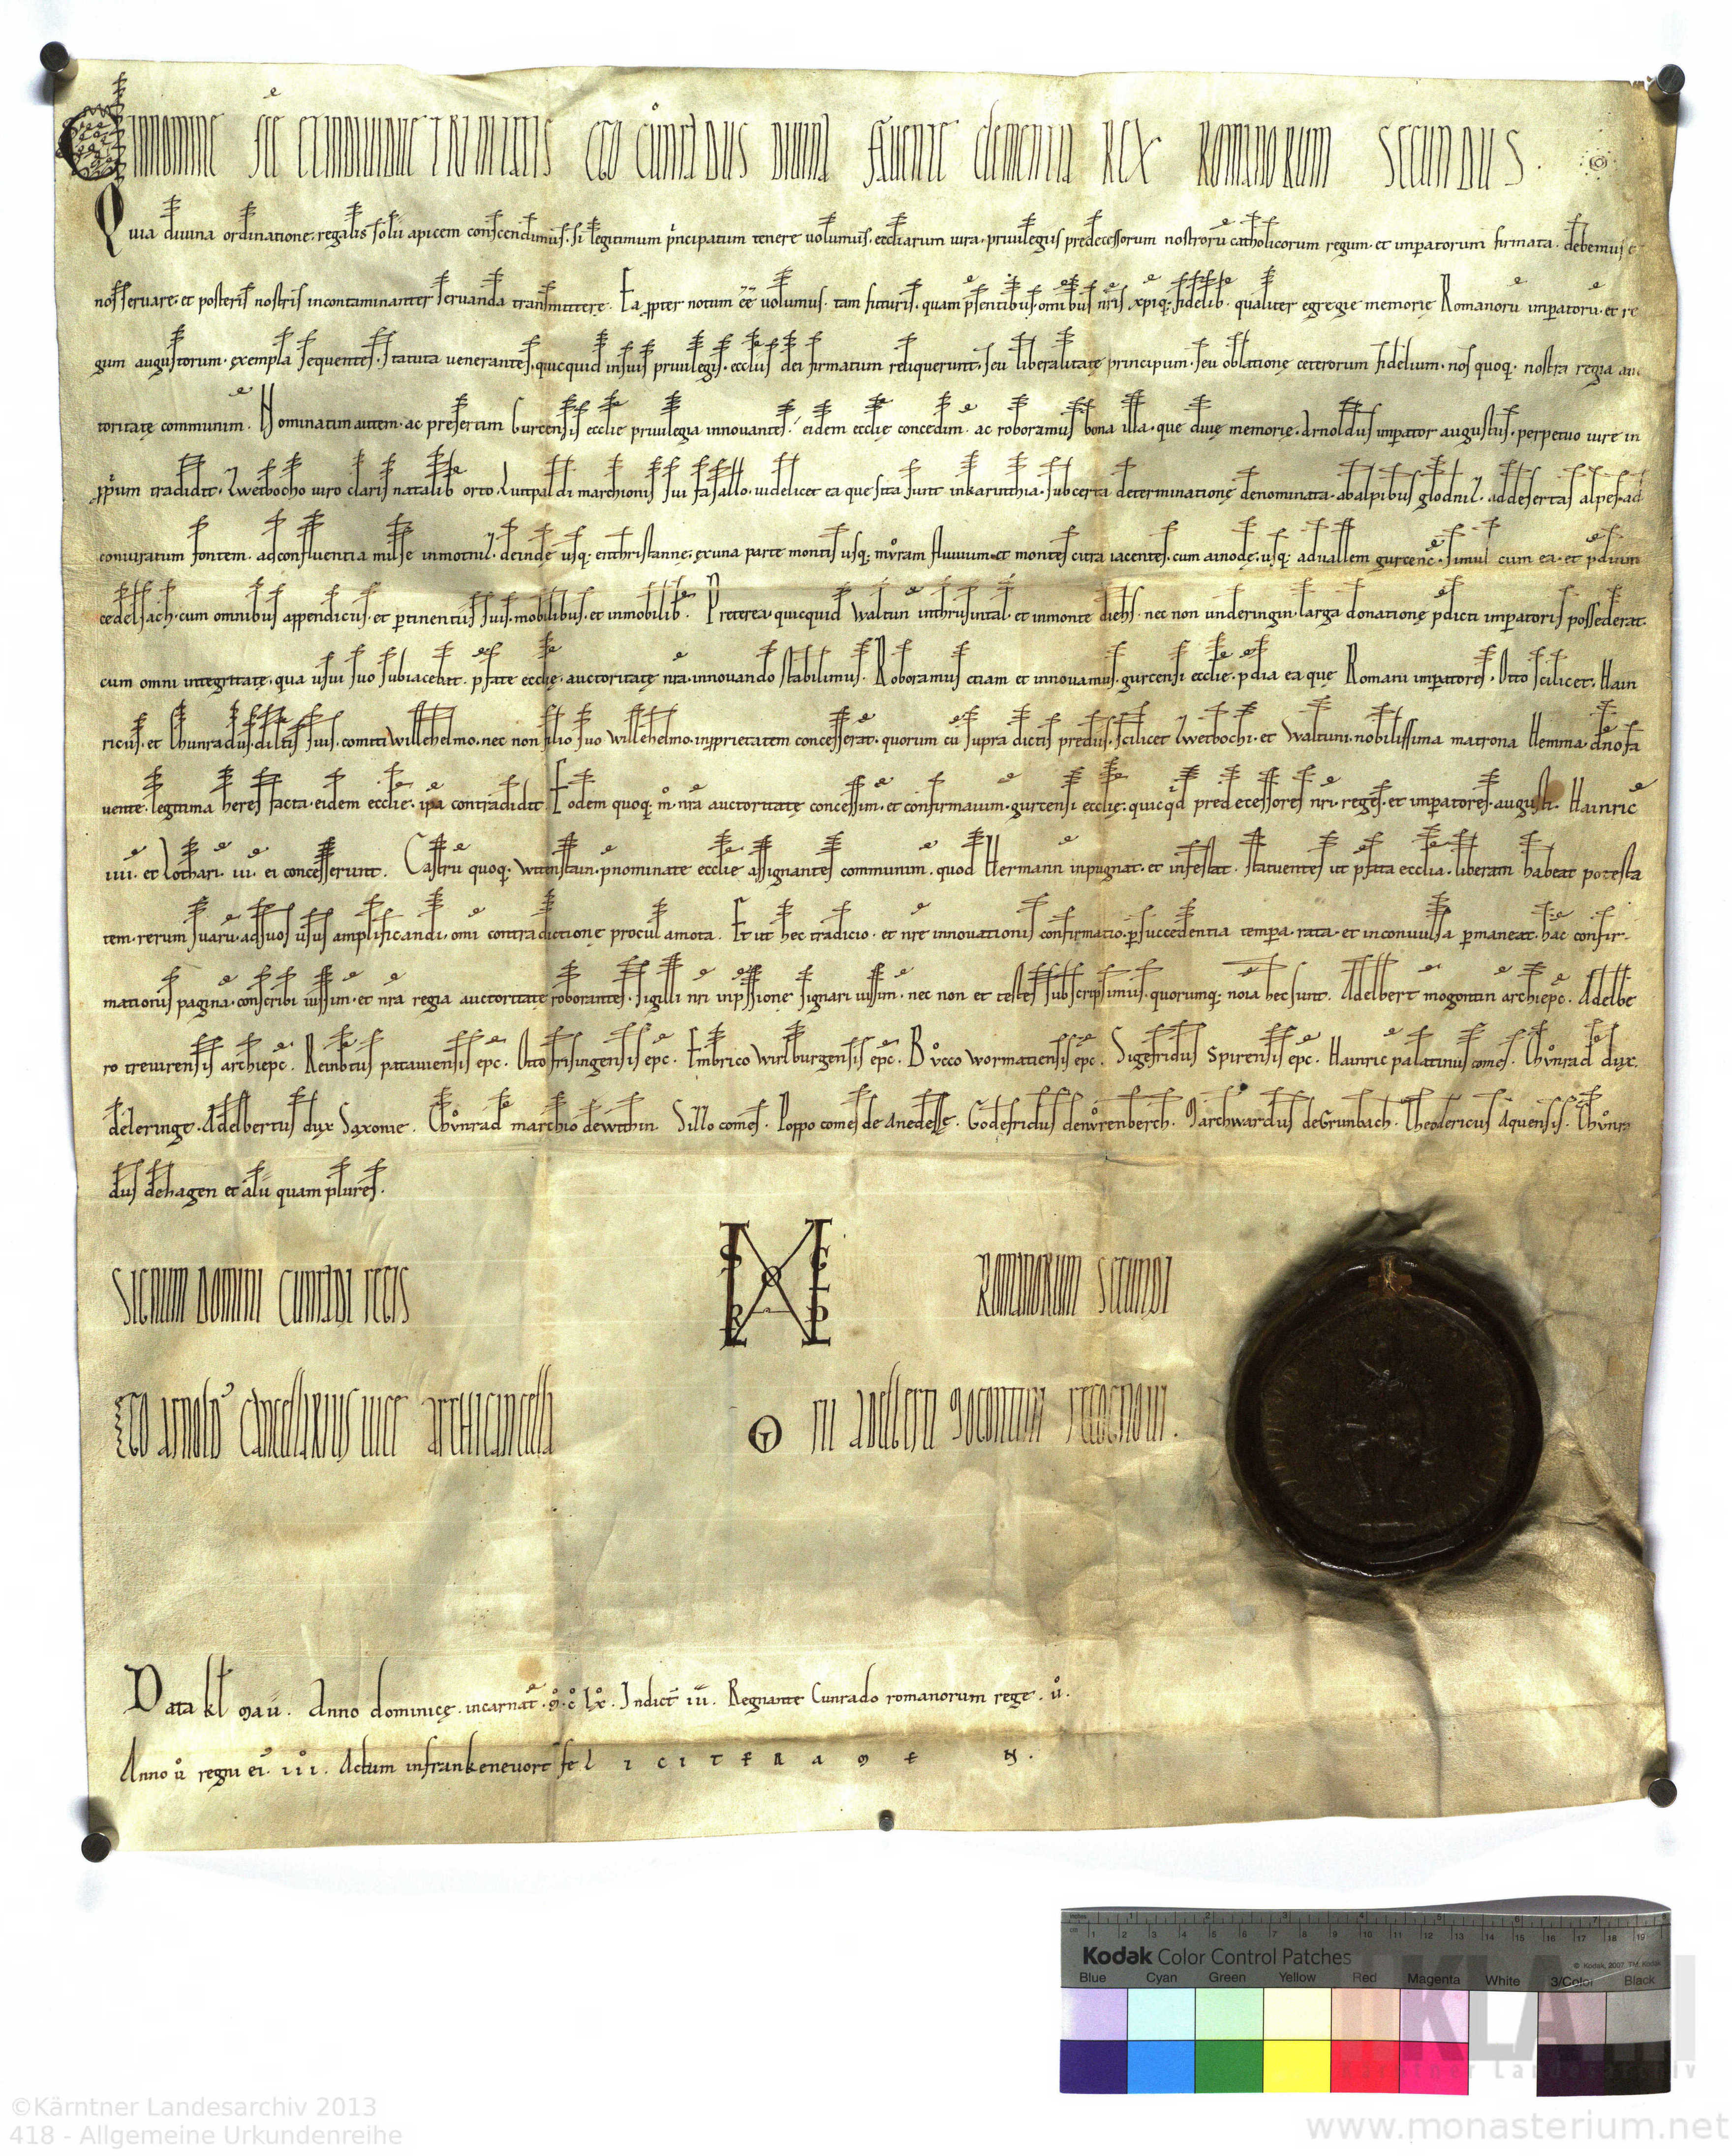 IN NOMINE S̄CE ET INDIVIDUE TRINITATIS EGO CŮNRADUS DIVINA FAVENTE CLEMENTIA REX ROMANORUM SECUNDUS.
Quia divina ordinatione. regalis solii apicem conscendimus. si legitimum pͥncipatum tenere volumus. ecc̄liarum iura. privilegiis predecessorum nostrorū catholicorum regum. et imꝑatorum firmata. debemus et
nos servare. et posteris nostris incontaminanter servanda transmittere. Ea ꝓpter notum ēē volumus. tam futuris. quam p̄sentibus omibus nr̄is xp̄iq; fidelib. qualiter egregie memorię Romanorū imꝑatorū. et re
gum augustorum. exempla sequentes. statuta venerantes. quicquid in suis privilegiis. eccl̄iis dei firmatum reliquerunt. seu liberalitate principum. seu oblatione ceterorum fidelium. nos quoq. nostra regia auc
toritate communim̄. Nominatim autem. ac presertim Gurcensis eccl̄ie privilegia innovantes. eidem eccl̄ię concedim̄. ac roboramus bona illa. que divę memorię. Arnoldus imꝑator augustus. perpetuo iure in
ꝓpͥum tradidit. Zwetbocho viro claris natalib orto. Luitpaldi marchionis sui fasallo. videlicet ea que sita sunt in karinthia. sub certa determinatione denominata. ab alpibus glodniz. ad desertas alpes. ad
coniuratum fontem. ad confluentia milse in motniz. deinde usq; entrichstanne. ex una parte montis usq; mŏram fluvium. et montes citra iacentes. cum ainode. usq; ad vallem gurcēnc̄. simul cum ea. et p̄dium
cedelsach. cum omnibus appendiciis. et ꝑtinentiis suis. mobilibus. et inmobilib. Preterea quicquid Waltun in thrusintal. et in monte diehs. nec non underingin. larga donatione p̄dicti imꝑatoris possederat.
cum omni integritate. qua usui suo subiacebat. p̄fate eccl̄ię. auctoritate nr̄a. innovando stabilimus. Roboramus etiam et innovamus. gurcensi eccl̄ie. p̄dia ea que Romani imꝑatores. Otto scilicet. Hain
ricus. et Chunradus. dil̄tis suis. comiti Willehelmo. nec non filio suo Willehelmo. in ꝓprietatem concesserat. quorum cū supra dictis prediis. scilicet Zwetbochi. et Waltuni. nobilissima matrona Hemma. dn̄o fa
vente. legitima heres facta. eidem eccl̄ie. ip̄a contradidit. Eodem quoq; m̊. nr̄a auctoritate concessim̄. et confirmavim̄. gurcensi eccl̄ię. quicq̇d predecessores nr̄i. reges. et imꝑatores. augusti. Hainric̄
iiii. et Lothari. iii. ei concesserunt. Castrū quoq. Witenstain. p̄nominate eccl̄ie assignantes communim̄. quod Hermann̄ inpugnat. et infestat. statuentes ut p̄fata eccl̄ia. liberam habeat potesta
tem. rerum suarū. ad suos usus amplificandi. om̄i contradictione procul amota. Et ut hec tradicio. et nr̄e innovationis confirmatio. ꝑ succedentia tempͣora. rata. et inconvulsa ꝑmaneat. hac confir-
mationis pagina. conscribi iussim̄. et nr̄a regia auctoritate roborantes. sigilli nr̄i inp̄ssione signari iussim̄. nec non et testes subscripsimus. quorumq; noīa hec sunt. Adelbert mogontin̄ archiep̄c. Adelbe
ro trevirensis archiep̄c. Reinb̄tus pataviensis ep̄c. Otto frisingensis ep̄c. Embrico wirzburgensis ep̄c. Bŏcco wormatiensis ep̄c. Sigefridus spirensis ep̄c. Hainric̄ palatinus comes. Chŏnrad dux.
de zeringe. Adelbertus dux Saxonie. Chŏnrad marchio de within. Sizzo comes. Poppo comes de anedesse. Godefridus de nŏrenberch. Marchwardus de Grunbach. Theodericus Aquensis. Chŏnra
dus de hagen et alii quam plures.
SIGNUM DOMINI CUNRADI REGIS ROMANORUM SECUNDI
EGO ARNOLD᾽ CANCELLARIUS VICE ARCHICANCELLA RII ADELBERTI MOGONTINI RECOGNOVI.
Data kl̄ Maii. Anno dominicę. incarnat̄. M̊. C̊ lx̊. Indict̄ iii. Regnante Cunrado romanorum rege. ů.
Anno ů regni ei᾽. iii. Actum in frankenevort feliciter amen.
Kodak Color Control Patches
© Kodak, 2007 TM: Kodak
Blue Cyan Green Yellow Red Magenta White 3/Color Black
KLA
Kärntner Landesarchiv
©Kärntner Landesarchiv 2013
418 - Allgemeine Urkundenreihe
www.monasterium.net